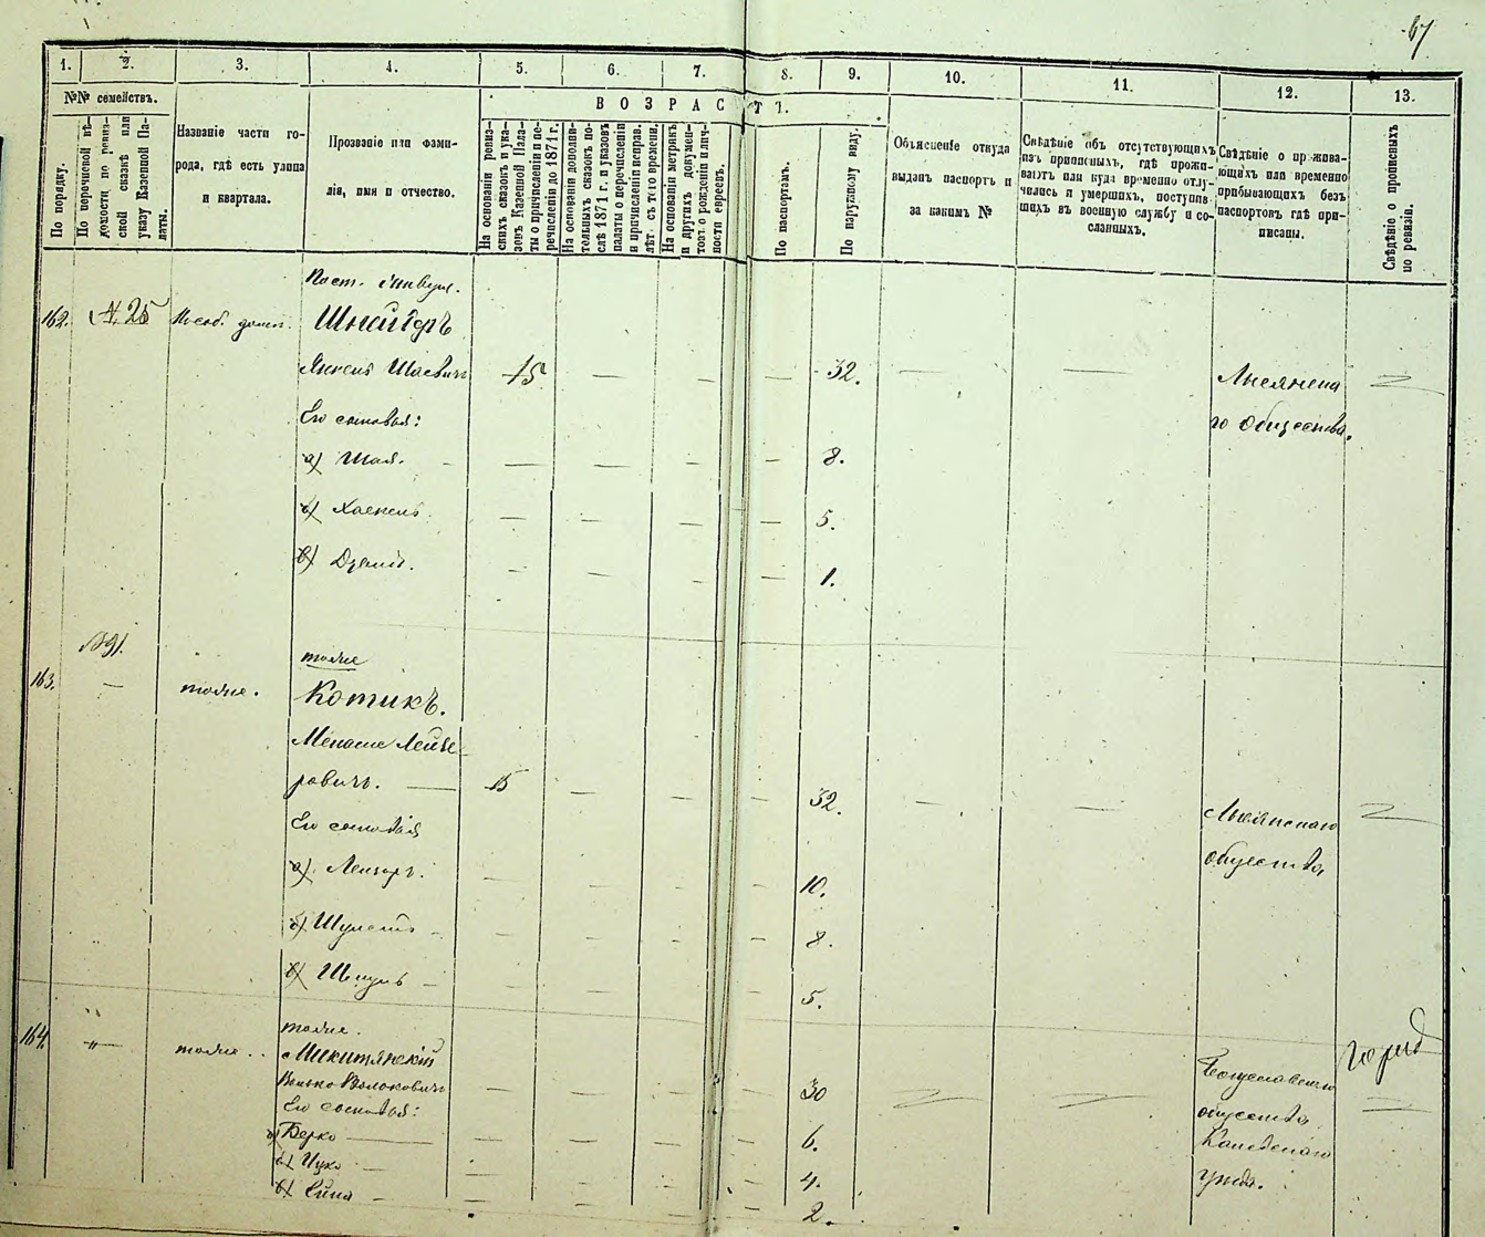 67
1. 2. 3. 4. 5. 6. 7. 8. 9. 10. 11. 12. 13.
№№ семействъ.
ВОЗРАСТЪ.
По порядку.
По перечневой вѣ-
домости по ревиз-
ской сказкѣ или
указу Казенной Па-
латы.
Названіе части го-
рода, гдѣ есть улица
и квартала.
Прозваніе или фами-
лія, имя и отчество.
На основаніи ревиз-
скихъ сказокъ и ука-
зовъ Казенной Пала-
ты о причисленіи и пе-
речисленіи до 1871 г.
На основаніи дополни-
тельныхъ сказокъ по-
слѣ 1871 г. и указовъ
палаты о перечисленіи
и причисленіи исправ.
лѣт. съ того времени.
На основаніи метрикъ
и другихъ докумен-
товъ о рожденіи и лич-
ности евреевъ.
По паспортамъ.
По наружному виду.
Объясненіе откуда
выданъ паспортъ и
за какимъ №
Свѣдѣніе объ отсутствующихъ
изъ приписныхъ, гдѣ прожи-
ваютъ или куда временно отлу-
чились и умершихъ, поступив-
шихъ въ военную службу и со-
сланныхъ.
Свѣдѣніе о прожива-
ющихъ или временно
прибывающихъ безъ
паспортовъ гдѣ при-
писаны.
Свѣдѣніе о прописныхъ
по ревизіи.
162. № 25
Шнейдеръ
Янкель Шаевичъ 15 — — — 32. — —
Его сыновья:
общества.
а) Шая. — — — — — 8.
б) Хаскель. — — — — 5.
в) — — — — 1.
163. — тоже. тоже
Котикъ.
Менаше Лейзе-
ровичъ. — 15 — — — 32. — —
Его сыновья
общества
а) Лейзеръ. — — — — 10.
б) Шулемъ — — — — — 8.
в) Шмуль — — — — — 5.
164. — тоже. тоже.
Микитянскій
Волько Волоковичъ — — — — 30 — —
Его сыновья:
Богуславскаго
общества
Каневскаго
уѣзда.
а) Берко — — — — — 6.
б) Ицко — — — — — 4.
в) — — — — — 2.